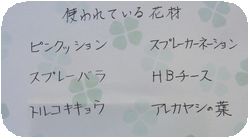 使われている花材
ピンクッション　スプレーカーネーション
スプレーバラ　HBチース
トルコキキョウ　アレカヤシの葉